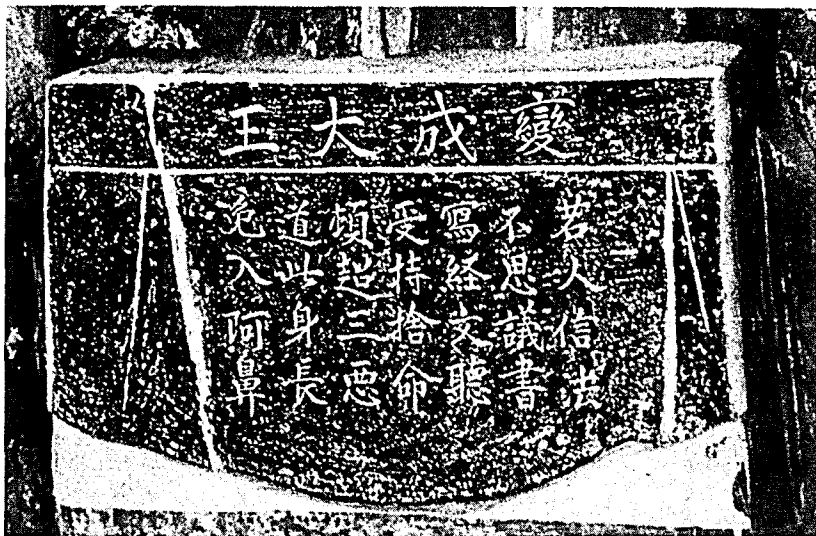 變成大王
若人信法
不思議書
寫経文聽
受持捨命
頓超三悪
道此身長
免入阿鼻